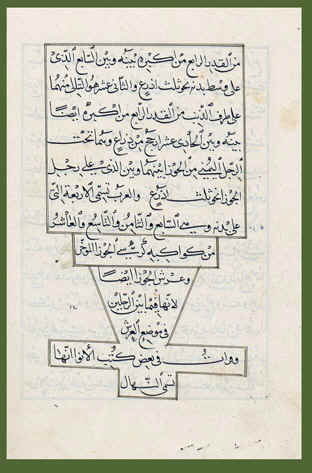 من القدر الرابع من اكبره بينه وبين السابع الذى
على وسط بدنه نحو ثلث اذرع والثانى عشر هو التالى منهما
على طرف الذنب من القدر الرابع من اكبره ايضا
بينه وبين الحادى عشر ارجح من ذراع وبينهما تحت
الرجل اليمنى من الجوزا بينهما وبين الذى على رجل
الجوزا نحو ثلث اذرع والعرب تسمى الاربعة التى
على بدنه وسى السابع والثامن والتاسع والعاشر
من كواكبه كرسى الجوزا
وعرش الجوزا ايضا
لانها فيما بين الرجلين
فى موضع العرش
ورايت فى بعض كتب الانوا انها
تسمى النهال